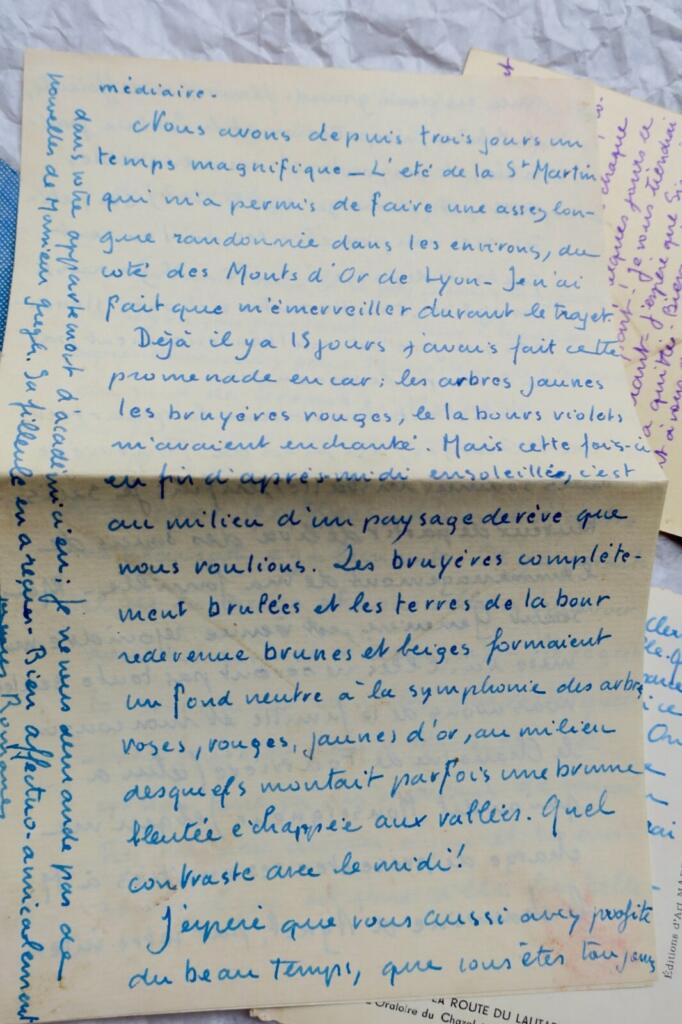 médiaire.
Nous avons depuis trois jours un
temps magnifique _ L'été de la St Martin
qui m'a permis de faire une assez lon-
gue randonnée dans les environs, du
coté des Monts d'Or de Lyon - Je n'ai
fait que m'émerveiller durant le trajet.
Déjà il y a 15 jours j'avais fait cette
promenade en car ; les arbres jaunes
les bruyères rouges, le labours violets
m'avaient enchanté. Mais cette fois-ci
en fin d'après-midi ensoleillée, c'est
au milieu d'un paysage de rêve que
nous roulions. Les bruyères complète-
ment brulées et les terres de labour
redevenue brunes et beiges formaient
un fond neutre à la symphonie des arbres
roses, rouges, jaunes d'or, au milieu
desquels montait parfois une brume
bleutée échappée aux vallées. Quel
contraste avec le midi !
J'espère que vous aussi avez profité
du beau temps, que vous êtes toujours
dans votre appartement d'académicien ; je ne vous demande pas de
nouvelles de Monsieur Gregh. Sa filleule en a reçues - Bien affectuo-amicalement
chaque
jours ce
je vous tiendrai
j'espère que
a quitter. Bien
On
Éditions d'Art
LA ROUTE DU LAUTAR
Oratoire du